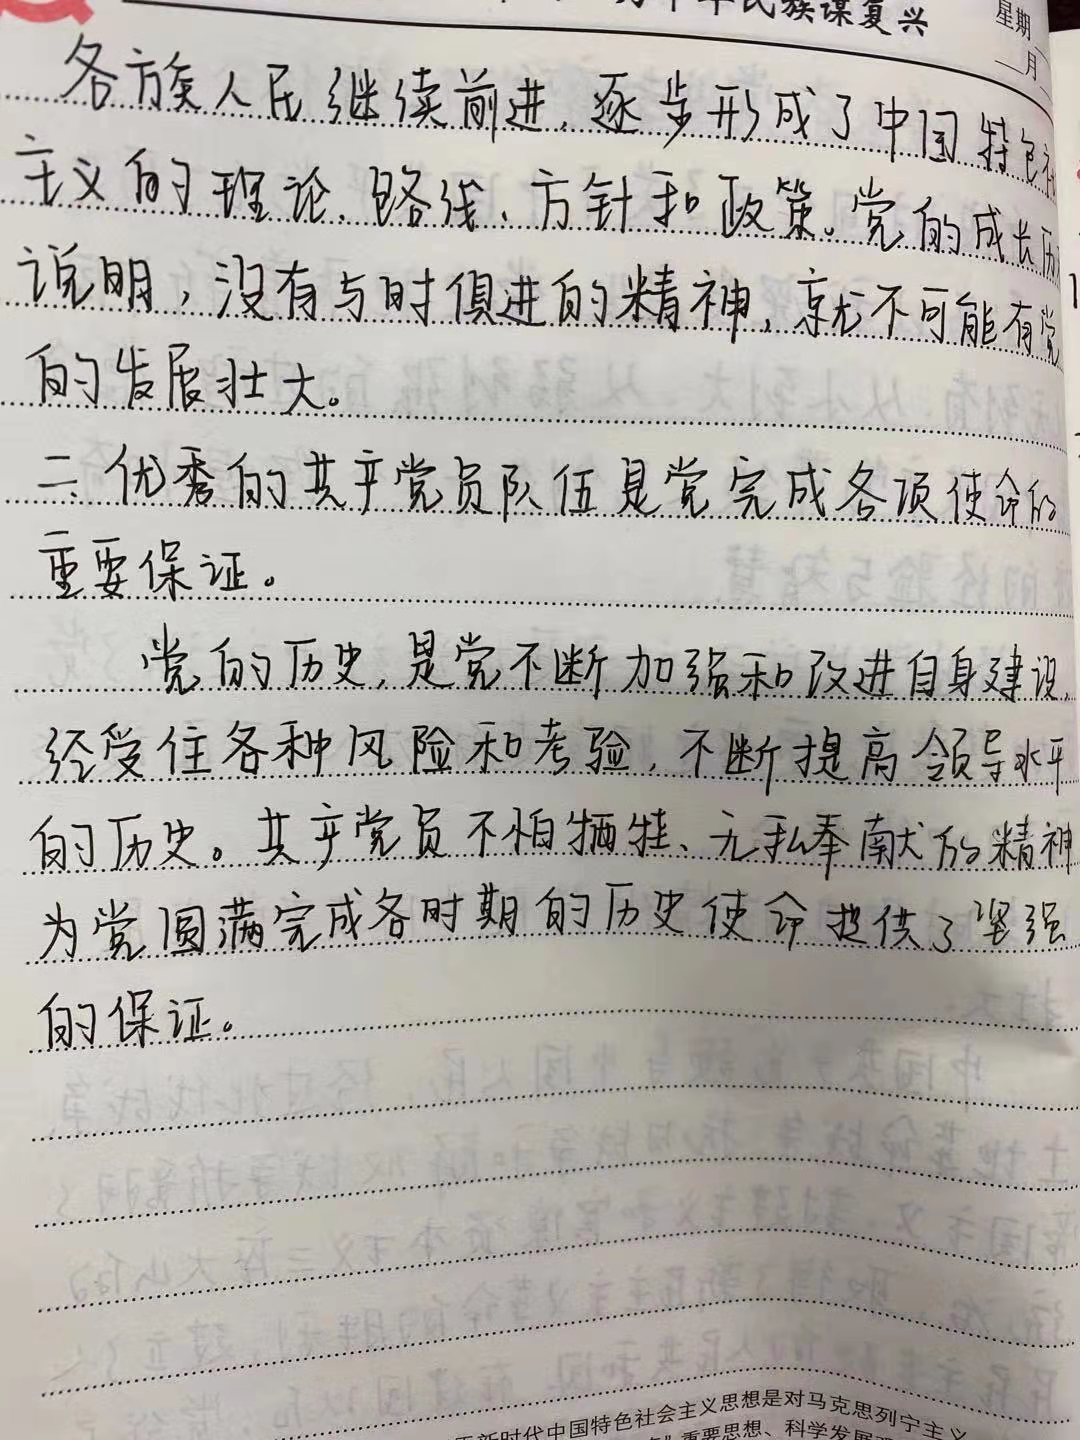 民族谋复兴
星期
月
各族人民继续前进,逐步形成了中国特色社
主义的理论、路线、方针和政策。党的成长历
说明,没有与时俱进的精神,就不可能有党
的发展壮大。
二、优秀的共产党员队伍是党完成各项使命的
重要保证。
党的历史,是党不断加强和改进自身建设,
经受住各种风险和考验,不断提高领导水平
的历史。共产党员不怕牺牲、无私奉献的精神
为党圆满完成各时期的历史使命提供了坚强
的保证。
新时代中国特色社会主义思想是对马克思列宁主义
重要思想、科学发展